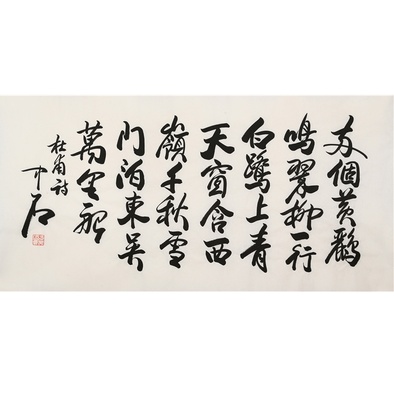 两個黃鸝
鳴翠柳一行
白鷺上青
天窗含西
嶺千秋雪
門泊東吳
萬里船
杜甫詩
中石